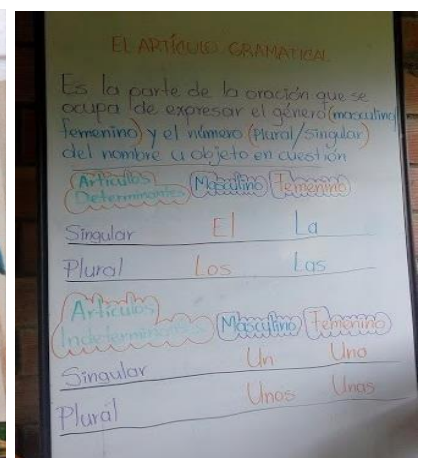 EL ARTÍCULO GRAMATICAL
Es la parte de la oración que se
ocupa de expresar el género (masculino/
femenino) y el número (Plural/Singular)
del nombre u objeto en cuestión
Artículos Masculino Femenino
Determinantes
Singular El La
Plural Los Las
Artículos
Indeterminantes Masculino Femenino
Singular Un Una
Plural Unos Unas